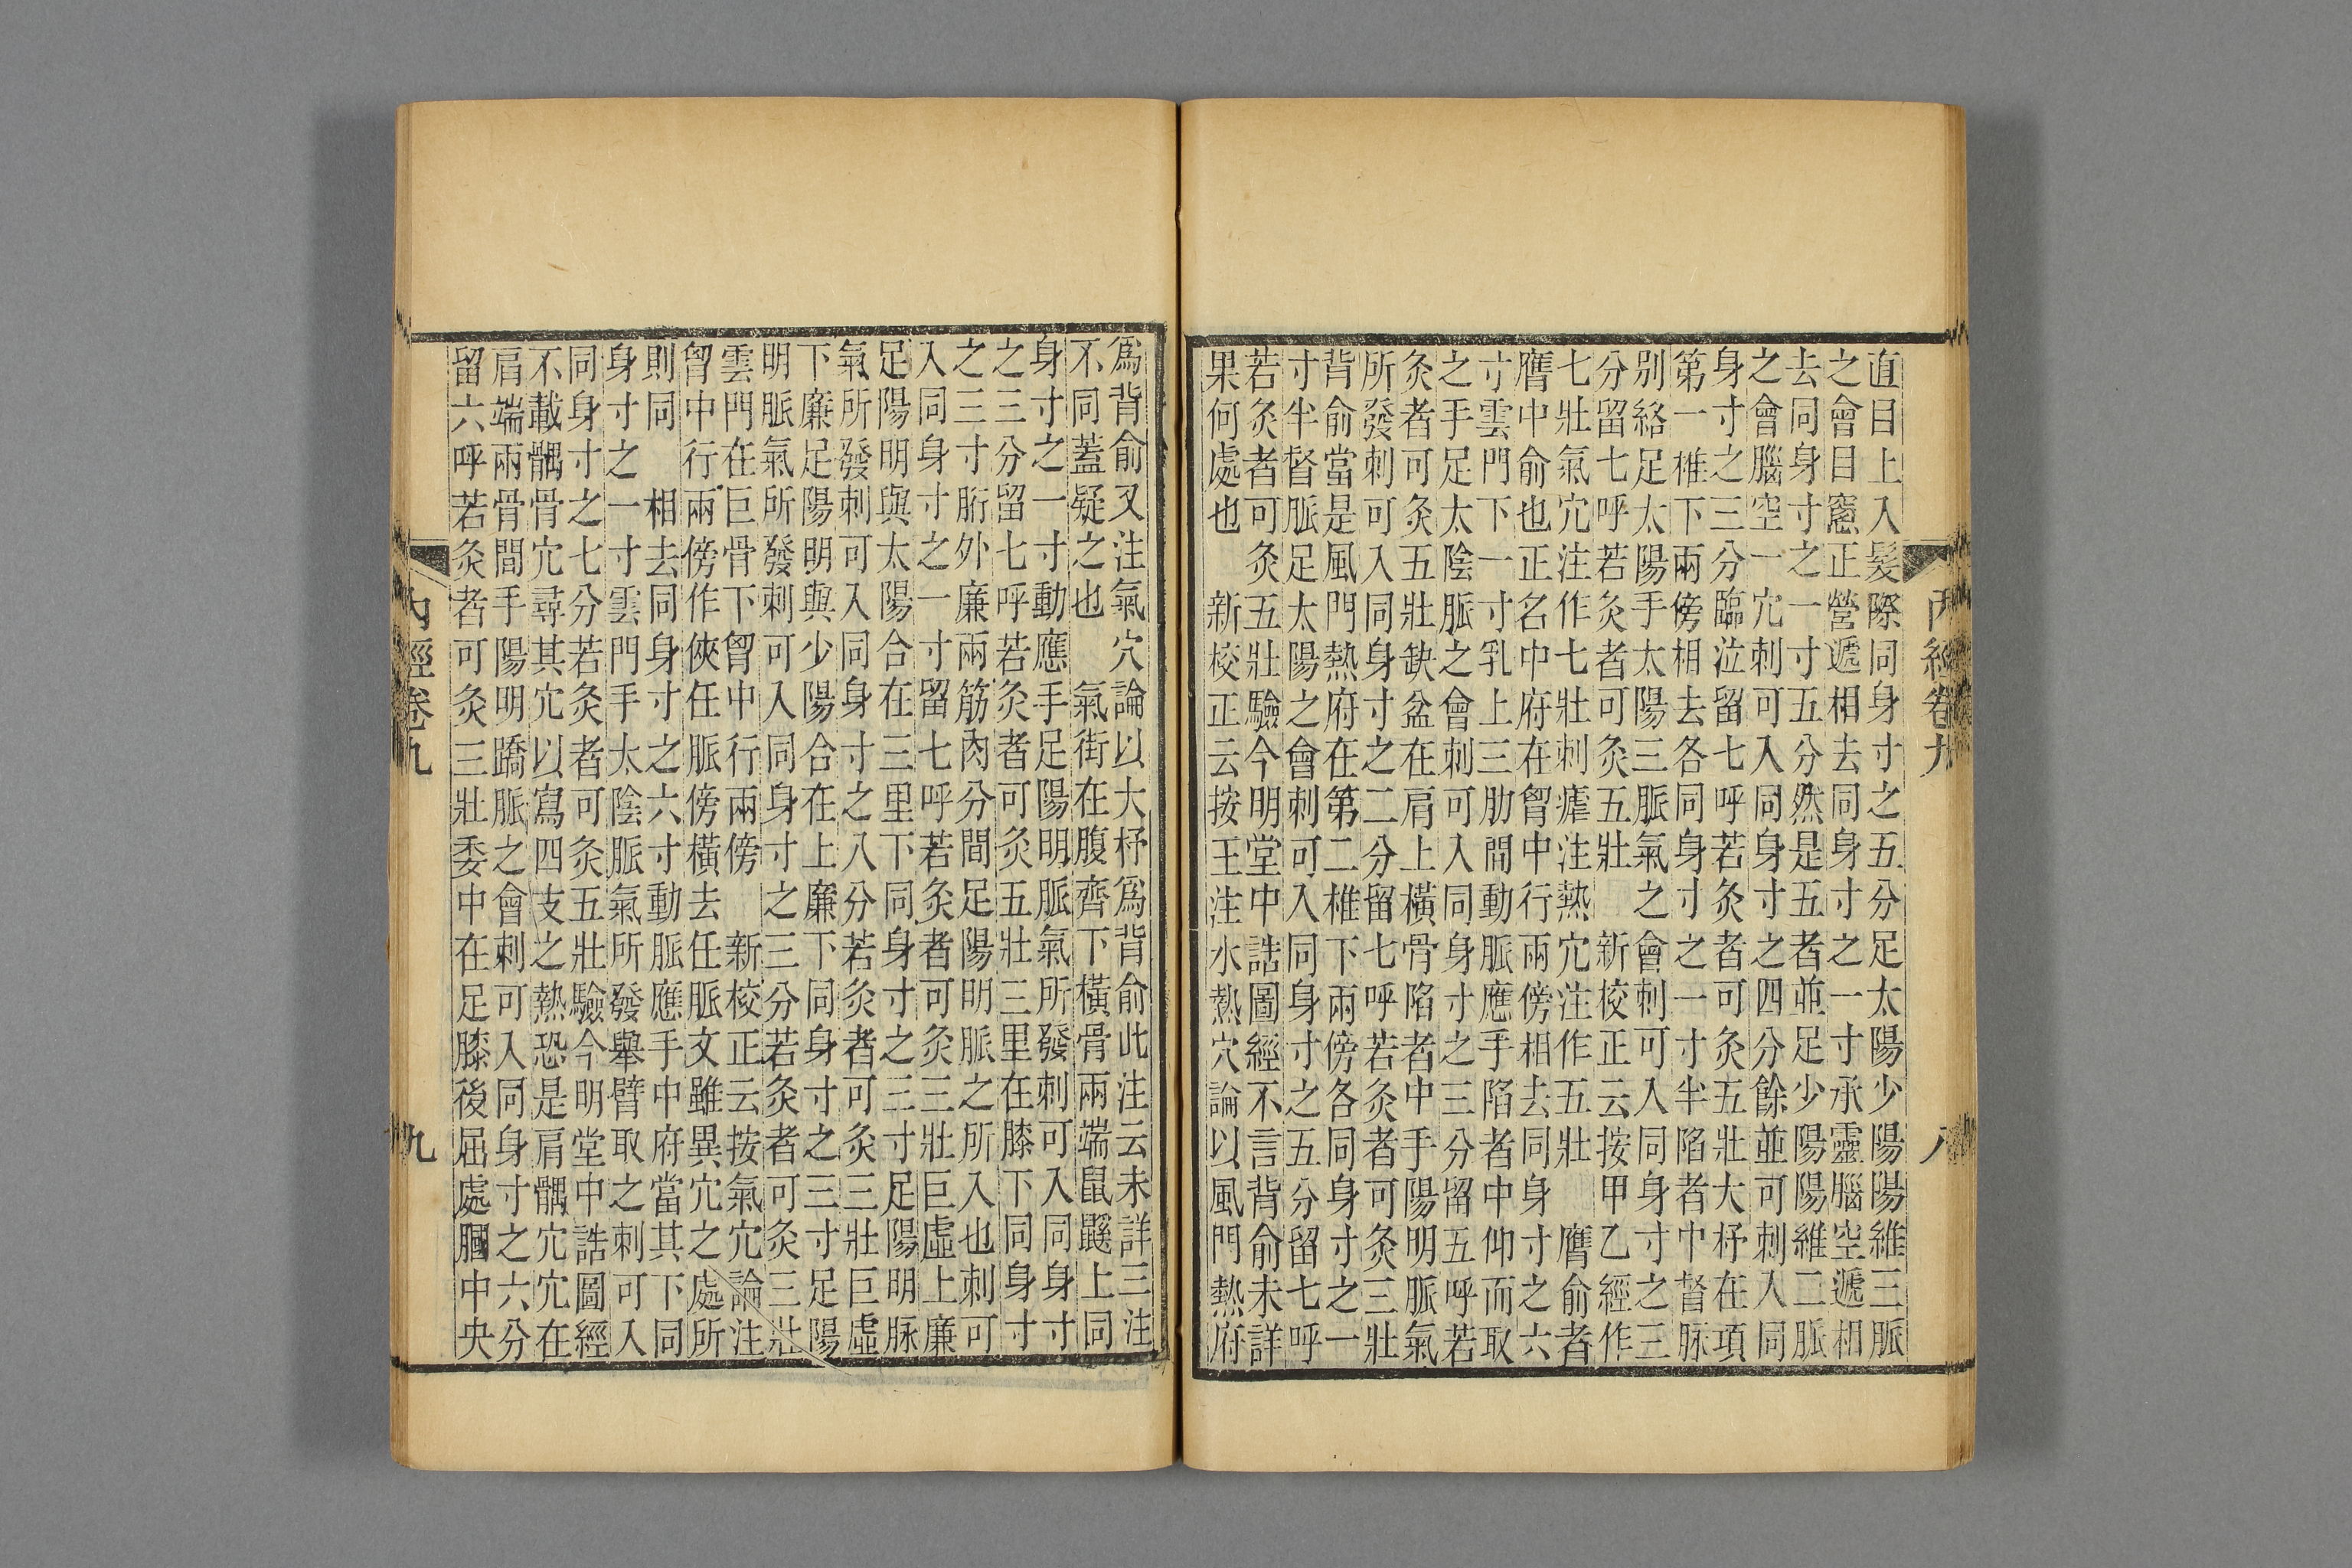 直目上入髮際同身寸之五分足太陽少陽陽維三脈
之會目窻正營遞相去同身寸之一寸承靈腦空遞相
去同身寸之一寸五分然是五者並足少陽陽維二脈
之會腦空一穴刺可入同身寸之四分餘並可刺入同
身寸之三分臨泣留七呼若灸者可灸五壯大杼在項
第一椎下兩傍相去各同身寸之一寸半陷者中督脉
别絡足太陽手太陽三脈氣之會刺可入同身寸之三
分留七呼若灸者可灸五壯 新校正云按甲乙經作
七壯氣穴注作七壯刺瘧注熱穴注作五壯 膺俞者
膺中俞也正名中府在胷中行兩傍相去同身寸之六
寸雲門下一寸乳上三肋間動脈應手陷者中仰而取
之手足太陰脈之會刺可入同身寸之三分留五呼若
灸者可灸五壯缺盆在肩上橫骨陷者中手陽明脈氣
所發刺可入同身寸之二分留七呼若灸者可灸三壯
背俞當是風門熱府在第二椎下兩傍各同身寸之一
寸半督脈足太陽之會刺可入同身寸之五分留七呼
若灸者可灸五壯驗今明堂中誥圖經不言背俞未詳
果何處也 新校正云按王注水熱穴論以風門熱府
內經卷九 八
爲背俞又注氣穴論以大杼爲背俞此注云未詳三注
不同蓋疑之也 氣街在腹齊下橫骨兩端鼠鼷上同
身寸之一寸動應手足陽明脈氣所發刺可入同身寸
之三分留七呼若灸者可灸五壯三里在膝下同身寸
之三寸胻外廉兩筋肉分間足陽明脈之所入也刺可
入同身寸之一寸留七呼若灸者可灸三壯巨虛上廉
足陽明與太陽合在三里下同身寸之三寸足陽明脉
氣所發刺可入同身寸之八分若灸者可灸三壯巨虛
下廉足陽明與少陽合在上廉下同身寸之三寸足陽
明脈氣所發刺可入同身寸之三分若灸者可灸三壯
雲門在巨骨下胷中行兩傍 新校正云按氣穴論注
胷中行兩傍作俠任脈傍橫去任脈文雖異穴之處所
則同 相去同身寸之六寸動脈應手中府當其下同
身寸之一寸雲門手太陰脈氣所發舉臂取之刺可入
同身寸之七分若灸者可灸五壯驗今明堂中誥圖經
不載髃骨穴尋其穴以寫四支之熱恐是肩髃穴穴在
肩端兩骨間手陽明蹻脈之會刺可入同身寸之六分
留六呼若灸者可灸三壯委中在足膝後屈處膕中央
內經卷九 九